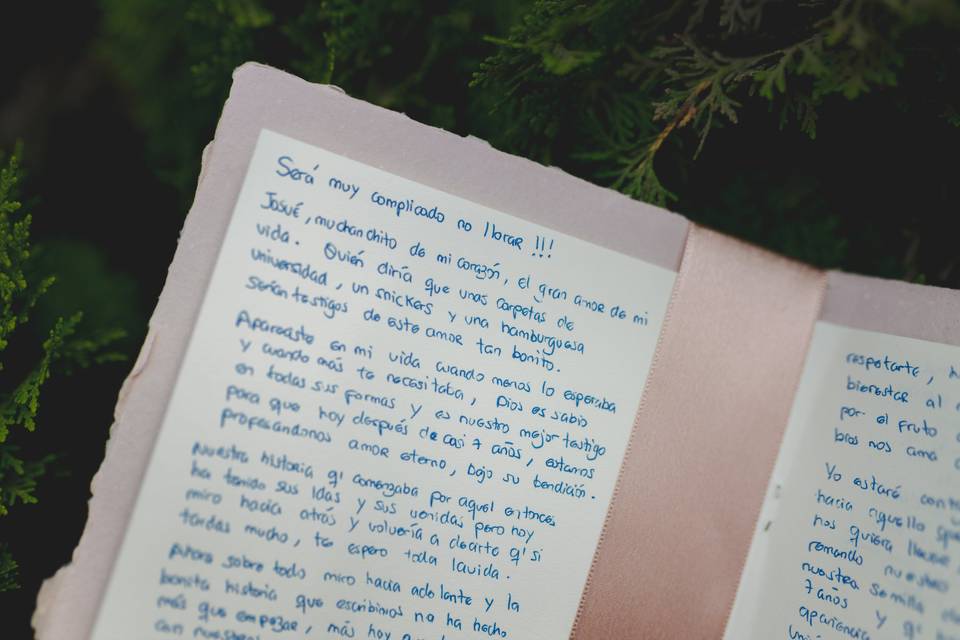 Será muy complicado no llorar !!!
Josué, muchanchito de mi corazón, el gran amor de mi
vida. Quién diría que unas carpetas de
universidad, un snickers y una hamburguesa
serían testigos de este amor tan bonito.
Apareciste en mi vida cuando menos lo esperaba
y cuando más te necesitaba, Dios es sabio
en todas sus formas y es nuestro mejor testigo
para que hoy después de casi 7 años, estamos
profesandonos amor eterno, bajo su bendición.
Nuestra historia q' comenzaba por aquel entonces
ha tenido sus idas y sus venidas pero hoy
miro hacia atrás y volvería a decirte q' si
tardas mucho, te espero toda la vida.
Ahora sobre todo miro hacia adelante y la
bonita historia que escribimos no ha hecho
más que empezar, más hoy
con
respetarte,
bienestar al
por el fruto
nos ama
Yo estaré
hacia aquello
nos quiera llevar
remando nuestro
nuestra semilla
7 años
apariencia
y q'